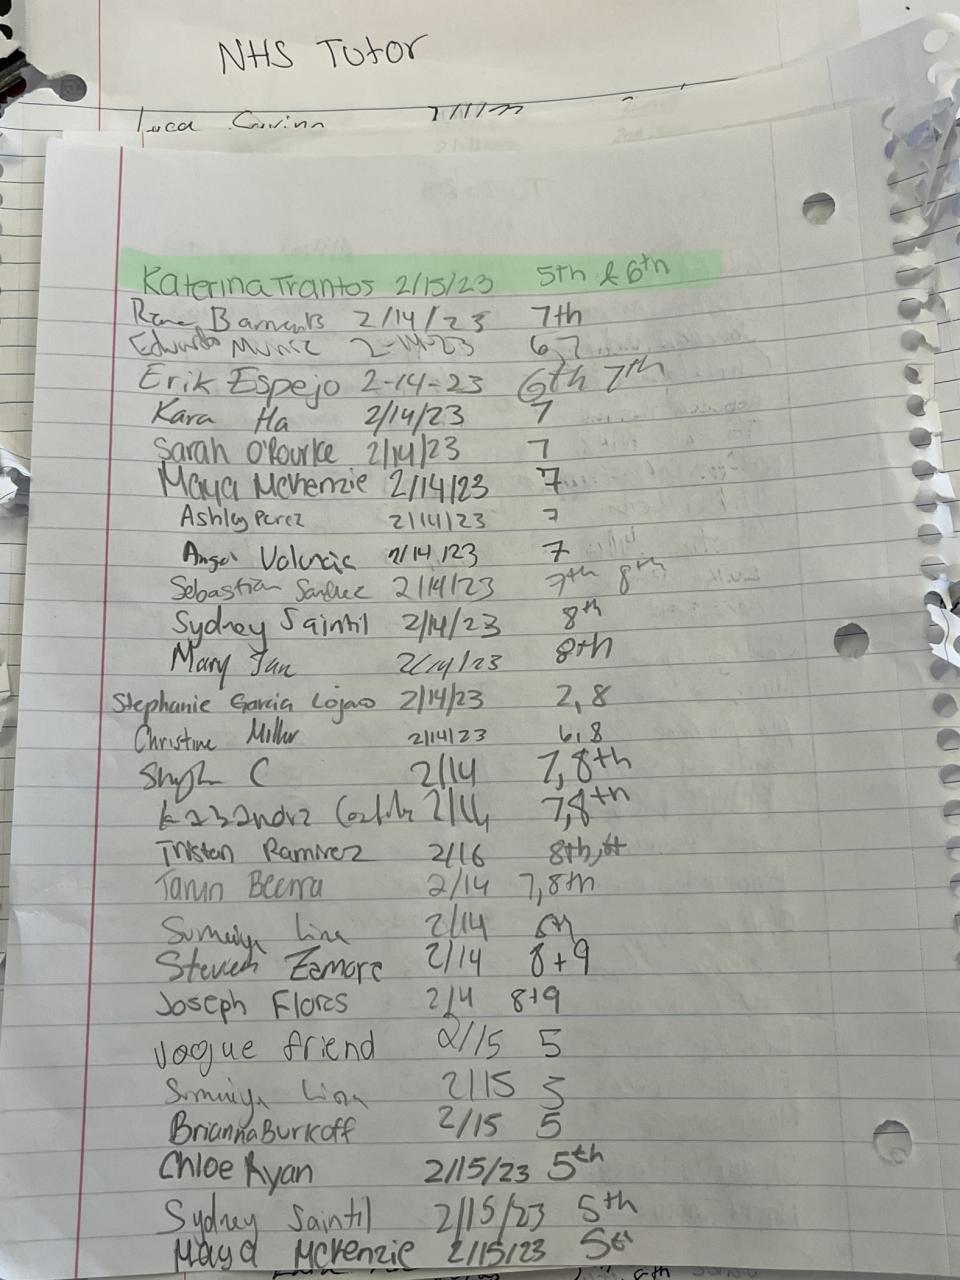 NHS Tutor
Luca
Katerina Trantos 2/15/23 5th & 6th
2/14/23 7th
2-14-23 6,7
Erik Espejo 2-14-23 6th 7th
Kara Ha 2/14/23 7
Sarah O'Rourke 2/14/23 7
Maya McKenzie 2/14/23 7
Ashley Perez 2/14/23 7
2/14/23 7
Sebastian 2/14/23 7th 8th
Sydney Saintil 2/14/23 8th
Mary 2/14/23 8th
Stephanie Garcia Lojano 2/14/23 2, 8
Christine Miller 2/14/23 6, 8
C 2/14 7, 8th
2/14 7,8th
Tristan Ramirez 2/16 8th,
2/14 7, 8th
Sumaiya Lina 2/14
Steven Zamora 2/14 8+9
Joseph Flores 2/4 8+9
vogue friend 2/15 5
Sumaiya Lina 2/15 5
Brianna Burkoff 2/15 5
Chloe Ryan 2/15/23 5th
Sydney Saintil 2/15/23 5th
Maya McKenzie 2/15/23 5th